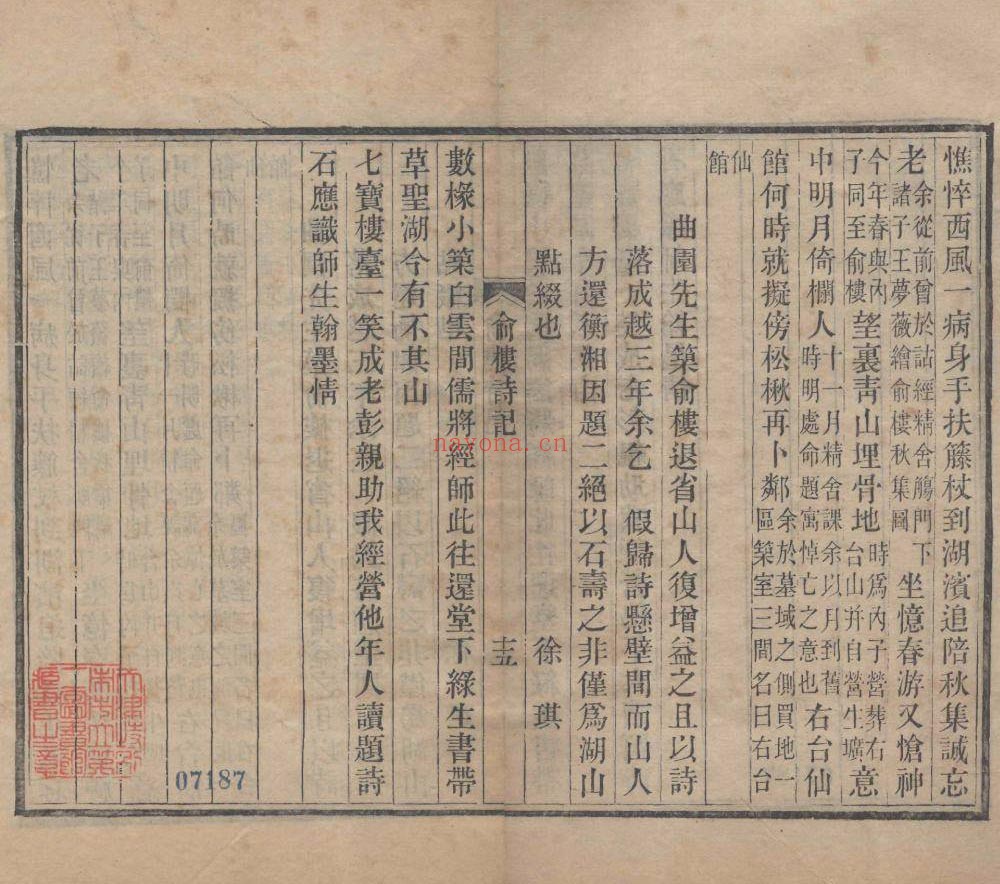 憔悴西風一病身手扶籐杖到湖濱追陪秋集誠忘
老余從前曾於詁經精舍觴門下諸子王夢薇繪俞樓秋集圖坐憶春游又愴神
今年春與內子同至俞樓望裏靑山埋骨地時爲內子營葬右台山幷自營生壙意
中明月倚欄人十一月精舍課余以月到舊時明處命題寓悼亡之意也右台仙
館何時就擬傍松楸再卜鄰余於墓域之側買地一區築室三間名曰右台
仙館
曲園先生築俞樓退省山人復增益之且以詩
落成越三年余乞 假歸詩懸壁間而山人
方還衡湘因題二絕以石壽之非僅爲湖山
點綴也 徐琪
俞樓詩記 十五
數椽小築白雲間儒將經師此往還堂下綠生書帶
草聖湖今有不其山
七寶樓臺一笑成老彭親助我經營他年人讀題詩
石應識師生翰墨情
07187
nayona.cn